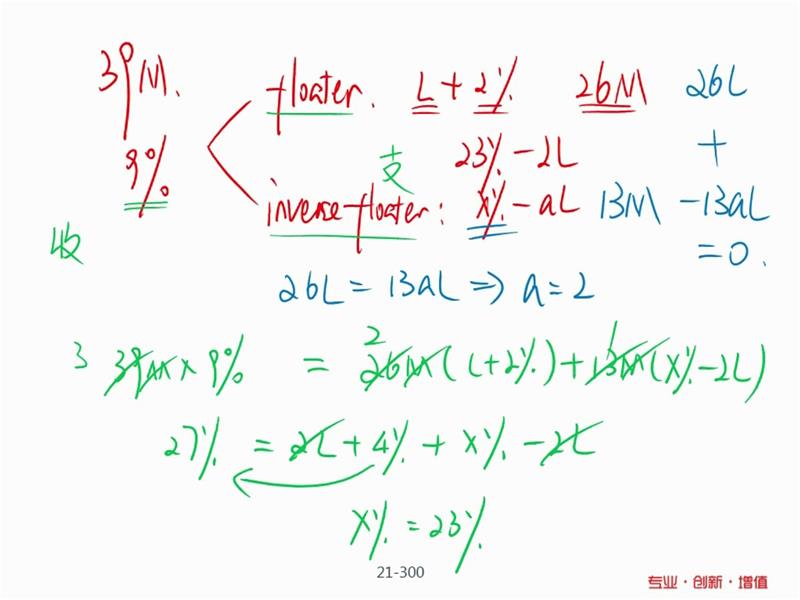 39M. floater. L + 2% 26M 26L
9% 支 23% - 2L +
inverse floater: x% - aL 13M - 13aL
收 = 0.
26L = 13aL ⇒ a = 2
3 39M × 9% = 2 26M (L+2%) + 1 13M (X% - 2L)
27% = 2L + 4% + X% - 2L
X% = 23%
21-300
专业·创新·增值